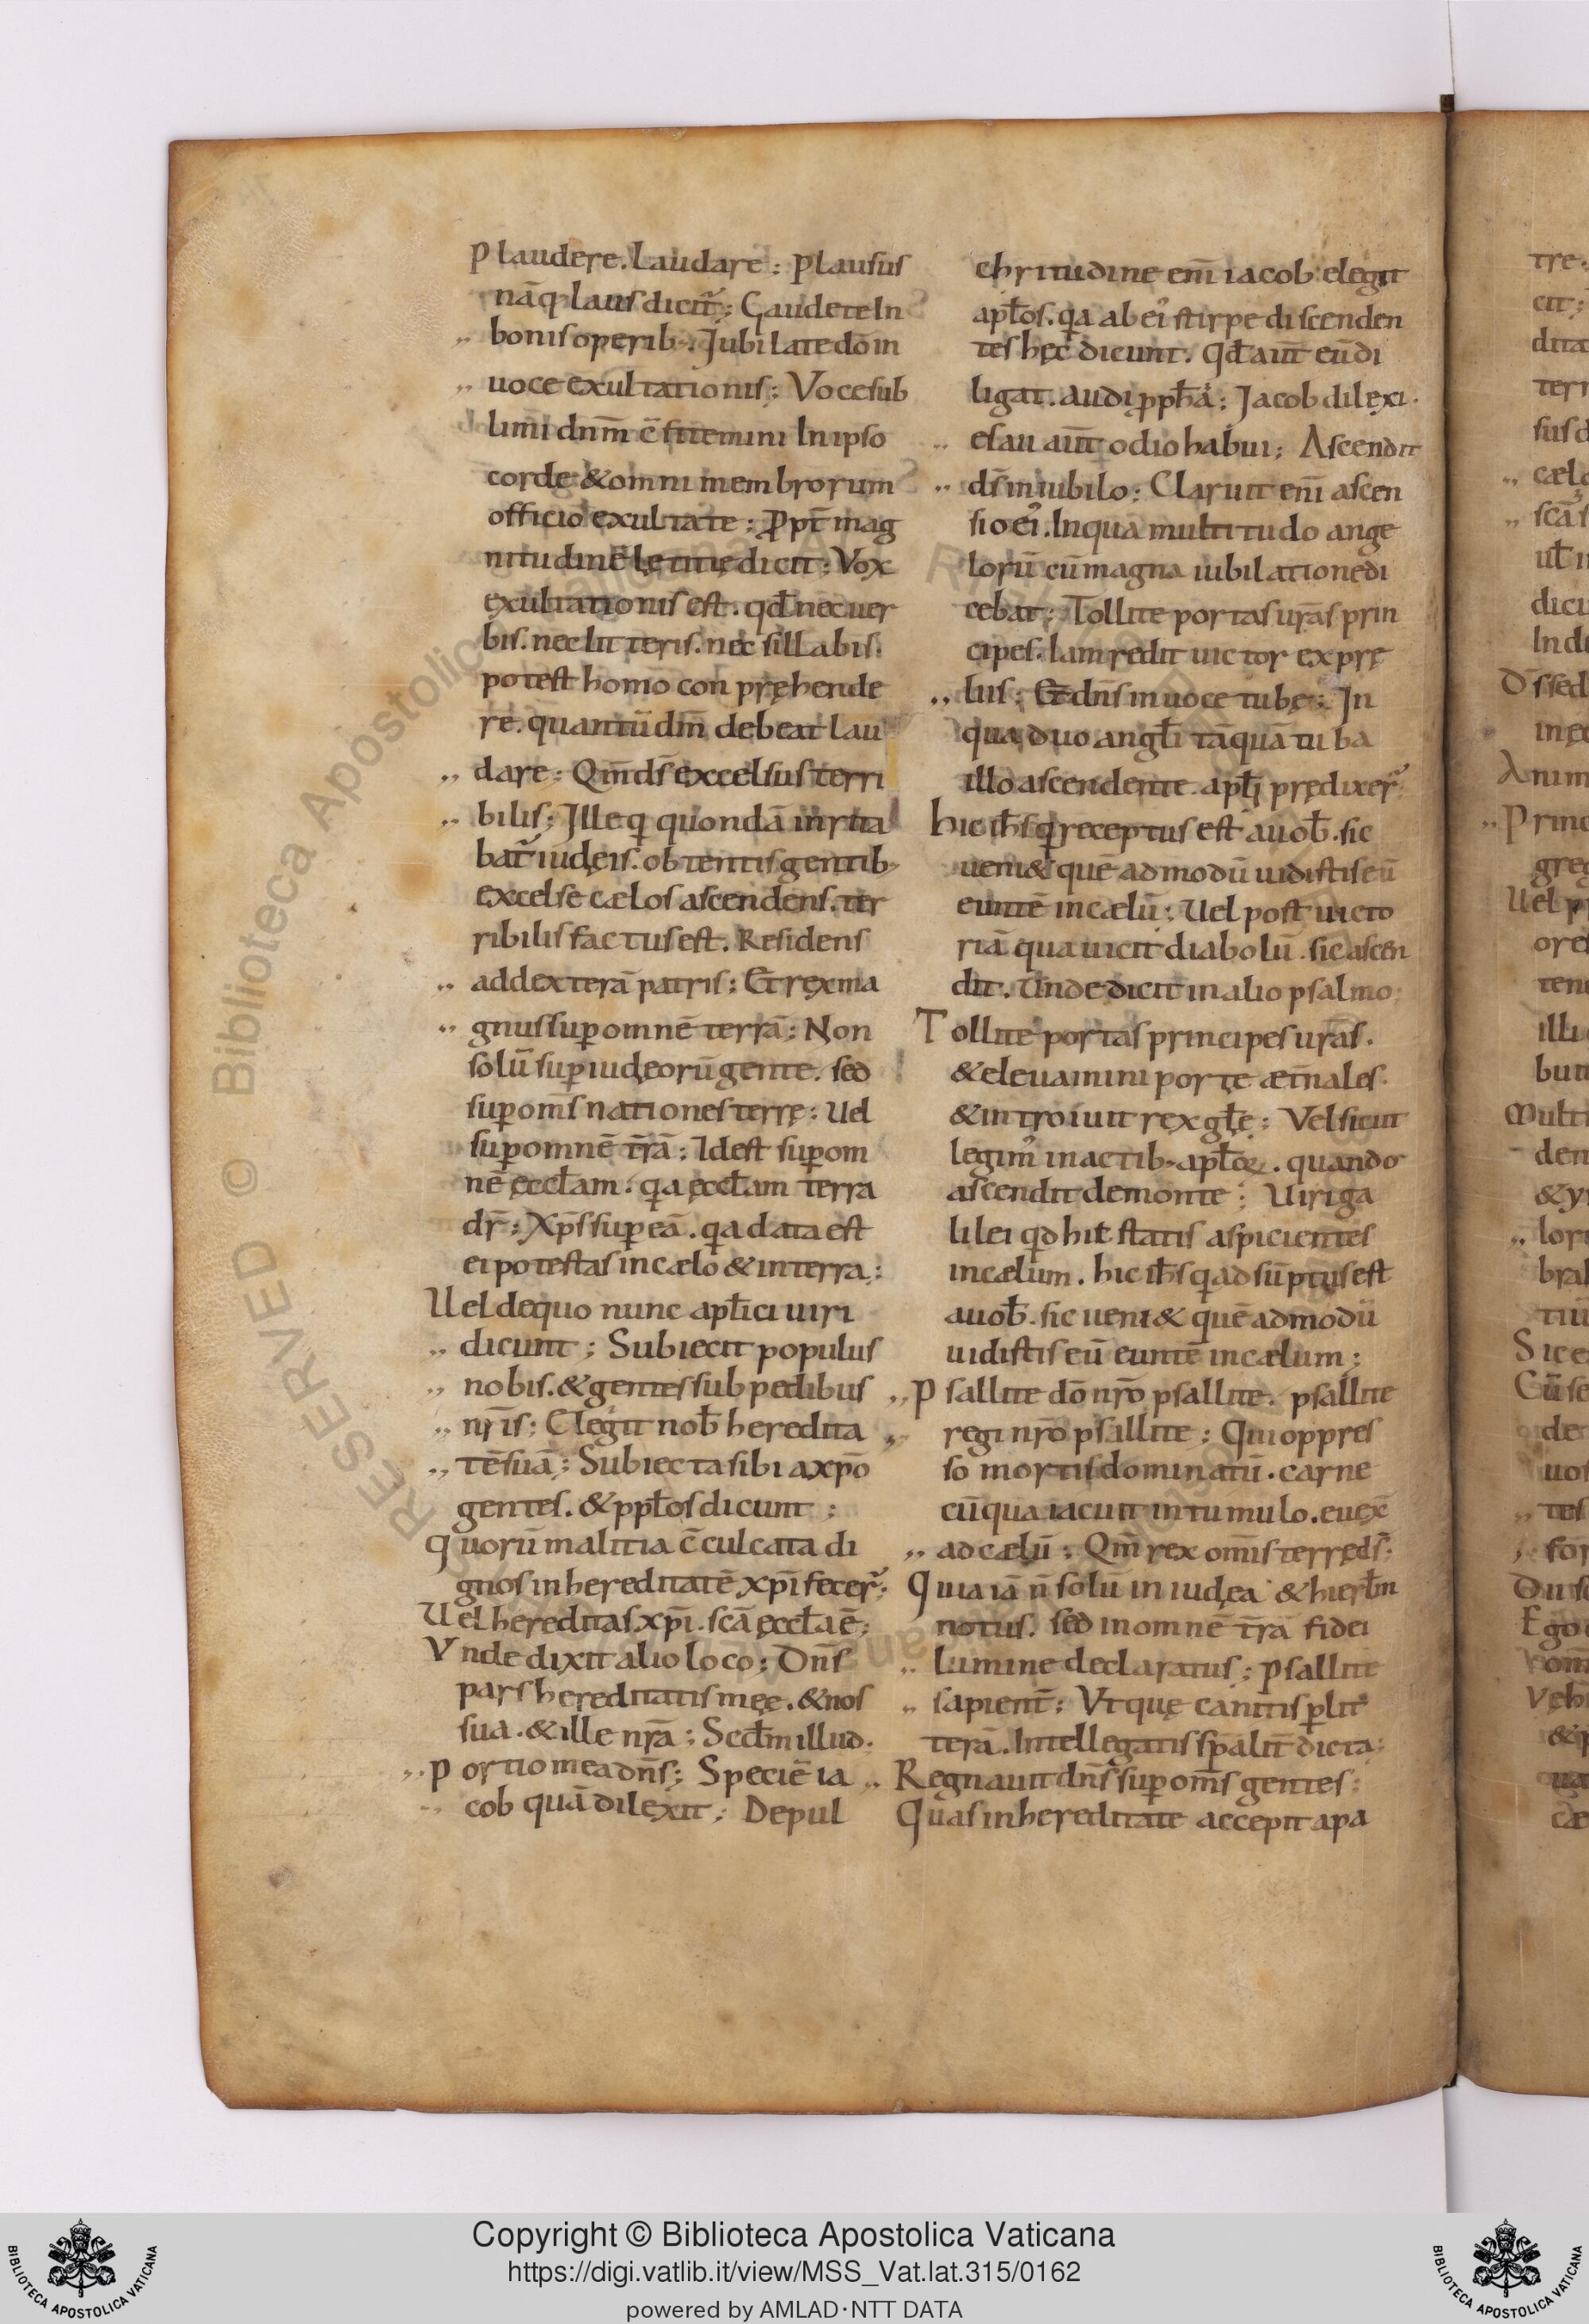 Plaudere. Laudare; Plausus
nāq; laus dicit̄; Gaudete In
bonis operib; Jubilate dō in
uoce exultationis; Voce sub
limi dnm̄ c̄fitemini In ipso
corde & omni membrorum
officio exultate; Ppt̄ mag
nitudinē lętitię dicit; Vox
exultationis est. qđ nec uer
bis. nec litteris. nec sillabis.
potest homo con pręhende
re. quantū dm̄ debeat lau
dare; Qm̄ ds̄ excelsus terri
bilis; Ille q quondā irrita
bat̄ iudęis. obtentis gentib;
excelse cælos ascendens. ter
ribilis factus est. Residens
ad dexterā patris; Et rex ma
gnus sup omnē terrā; Non
solū sup iudęorū gente. sed
sup om̄s nationes terrę; Uel
sup omnē tr̄ā; Idest sup om
nē ęccƚam. qa ęccƚam terra
dr̄; Xp̄s sup eā. qa data est
ei potestas in cælo & in terra;
Uel de quo nunc apƚici uiri
dicunt; Subiecit populus
nobis. & gentes sub pedibus
nr̄is; Elegit nob̄ heredita
tē suā; Subiecta sibi a xpō
gentes. & ppƚos dicunt;
Quorū malitia c̄culcata di
gnos in hereditatē xpī fecer̄;
Uel hereditas xpī. scā ęccƚa ē;
Vnde dixit alio loco; Dn̄s
pars hereditatis męe. & nos
sua. & ille nr̄a; Scdm̄ illud.
Portio mea dn̄s; Speciē ia
cob quā dilexit; De pul
chritudine em̄ iacob elegit
apƚos. qa ab ei' stirpe discenden
tes hęc dicunt. Qđ aut̄ eū di
ligat. audi ppħā; Jacob dilexi.
esau aut̄ odio habui; Ascendit
ds̄ in iubilo; Claruit em̄ ascen
sio ei'. In qua multitudo ange
lorū cū magna iubilatione di
cebat; Tollite portas ur̄as prin
cipes. Iam redit uictor ex prę
lus; Et dn̄s in uoce tubę; In
qua duo angƚi tāquā tuba
illo ascendente apƚi prędixer̄;
hic ih̄s q receptus est a uob̄. sic
ueni& quē ad modū uidistis eū
euntē in cælū; Uel post uicto
riā qua uicit diabolū. sic ascen
dit. Unde dicit in alio psalmo;
Tollite portas principes ur̄as.
& eleuamini porte æt̄nales.
& introiuit rex gƚe; Vel sicut
legim' in actib; apƚoꝝ. quando
ascendit de monte; Uiri ga
lilei qd hic statis aspicientes
in cælum. hic ih̄s q adsūptus est
a uob̄. sic ueni& quē ad modū
uidistis eū euntē in cælum;
Psallite dō nr̄o psallite. psallite
regi nr̄o psallite; Qui oppres
so mortis dominatū. carne
cū qua iacuit in tumulo. euex̄
ad cælū; Qm̄ rex om̄is terrę ds̄;
Quia iā n̄ solū in iudęa & hierƚm
notus. sed in omnē tr̄ā fidei
lumine declaratus; Psallite
sapient̄; Vt quę canitis p lit
terā. Intellegatis sp̄alit̄ dicta;
Regnauit dn̄s sup om̄s gentes;
Quas in hereditate accepit a pa
Copyright © Biblioteca Apostolica Vaticana
https://digi.vatlib.it/view/MSS_Vat.lat.315/0162
powered by AMLAD·NTT DATA